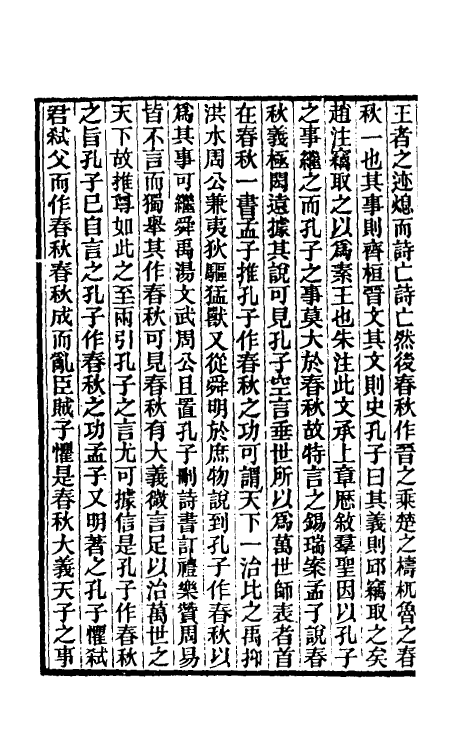 王者之迹熄而詩亡詩亡然後春秋作晉之乘楚之檮杌魯之春
秋一也其事則齊桓晉文其文則史孔子曰其義則邱竊取之矣
趙注竊取之以爲素王也朱注此文承上章歷敘羣聖因以孔子
之事繼之而孔子之事莫大於春秋故特言之錫瑞案孟子說春
秋義極閎遠據其說可見孔子空言垂世所以爲萬世師表者首
在春秋一書孟子推孔子作春秋之功可謂天下一治比之禹抑
洪水周公兼夷狄驅猛獸又從舜明於庶物說到孔子作春秋以
爲其事可繼舜禹湯文武周公且置孔子刪詩書訂禮樂贊周易
皆不言而獨舉其作春秋可見春秋有大義微言足以治萬世之
天下故推尊如此之至兩引孔子之言尤可據信是孔子作春秋
之旨孔子已自言之孔子作春秋之功孟子又明著之孔子懼弒
君弒父而作春秋春秋成而亂臣賊子懼是春秋大義天子之事